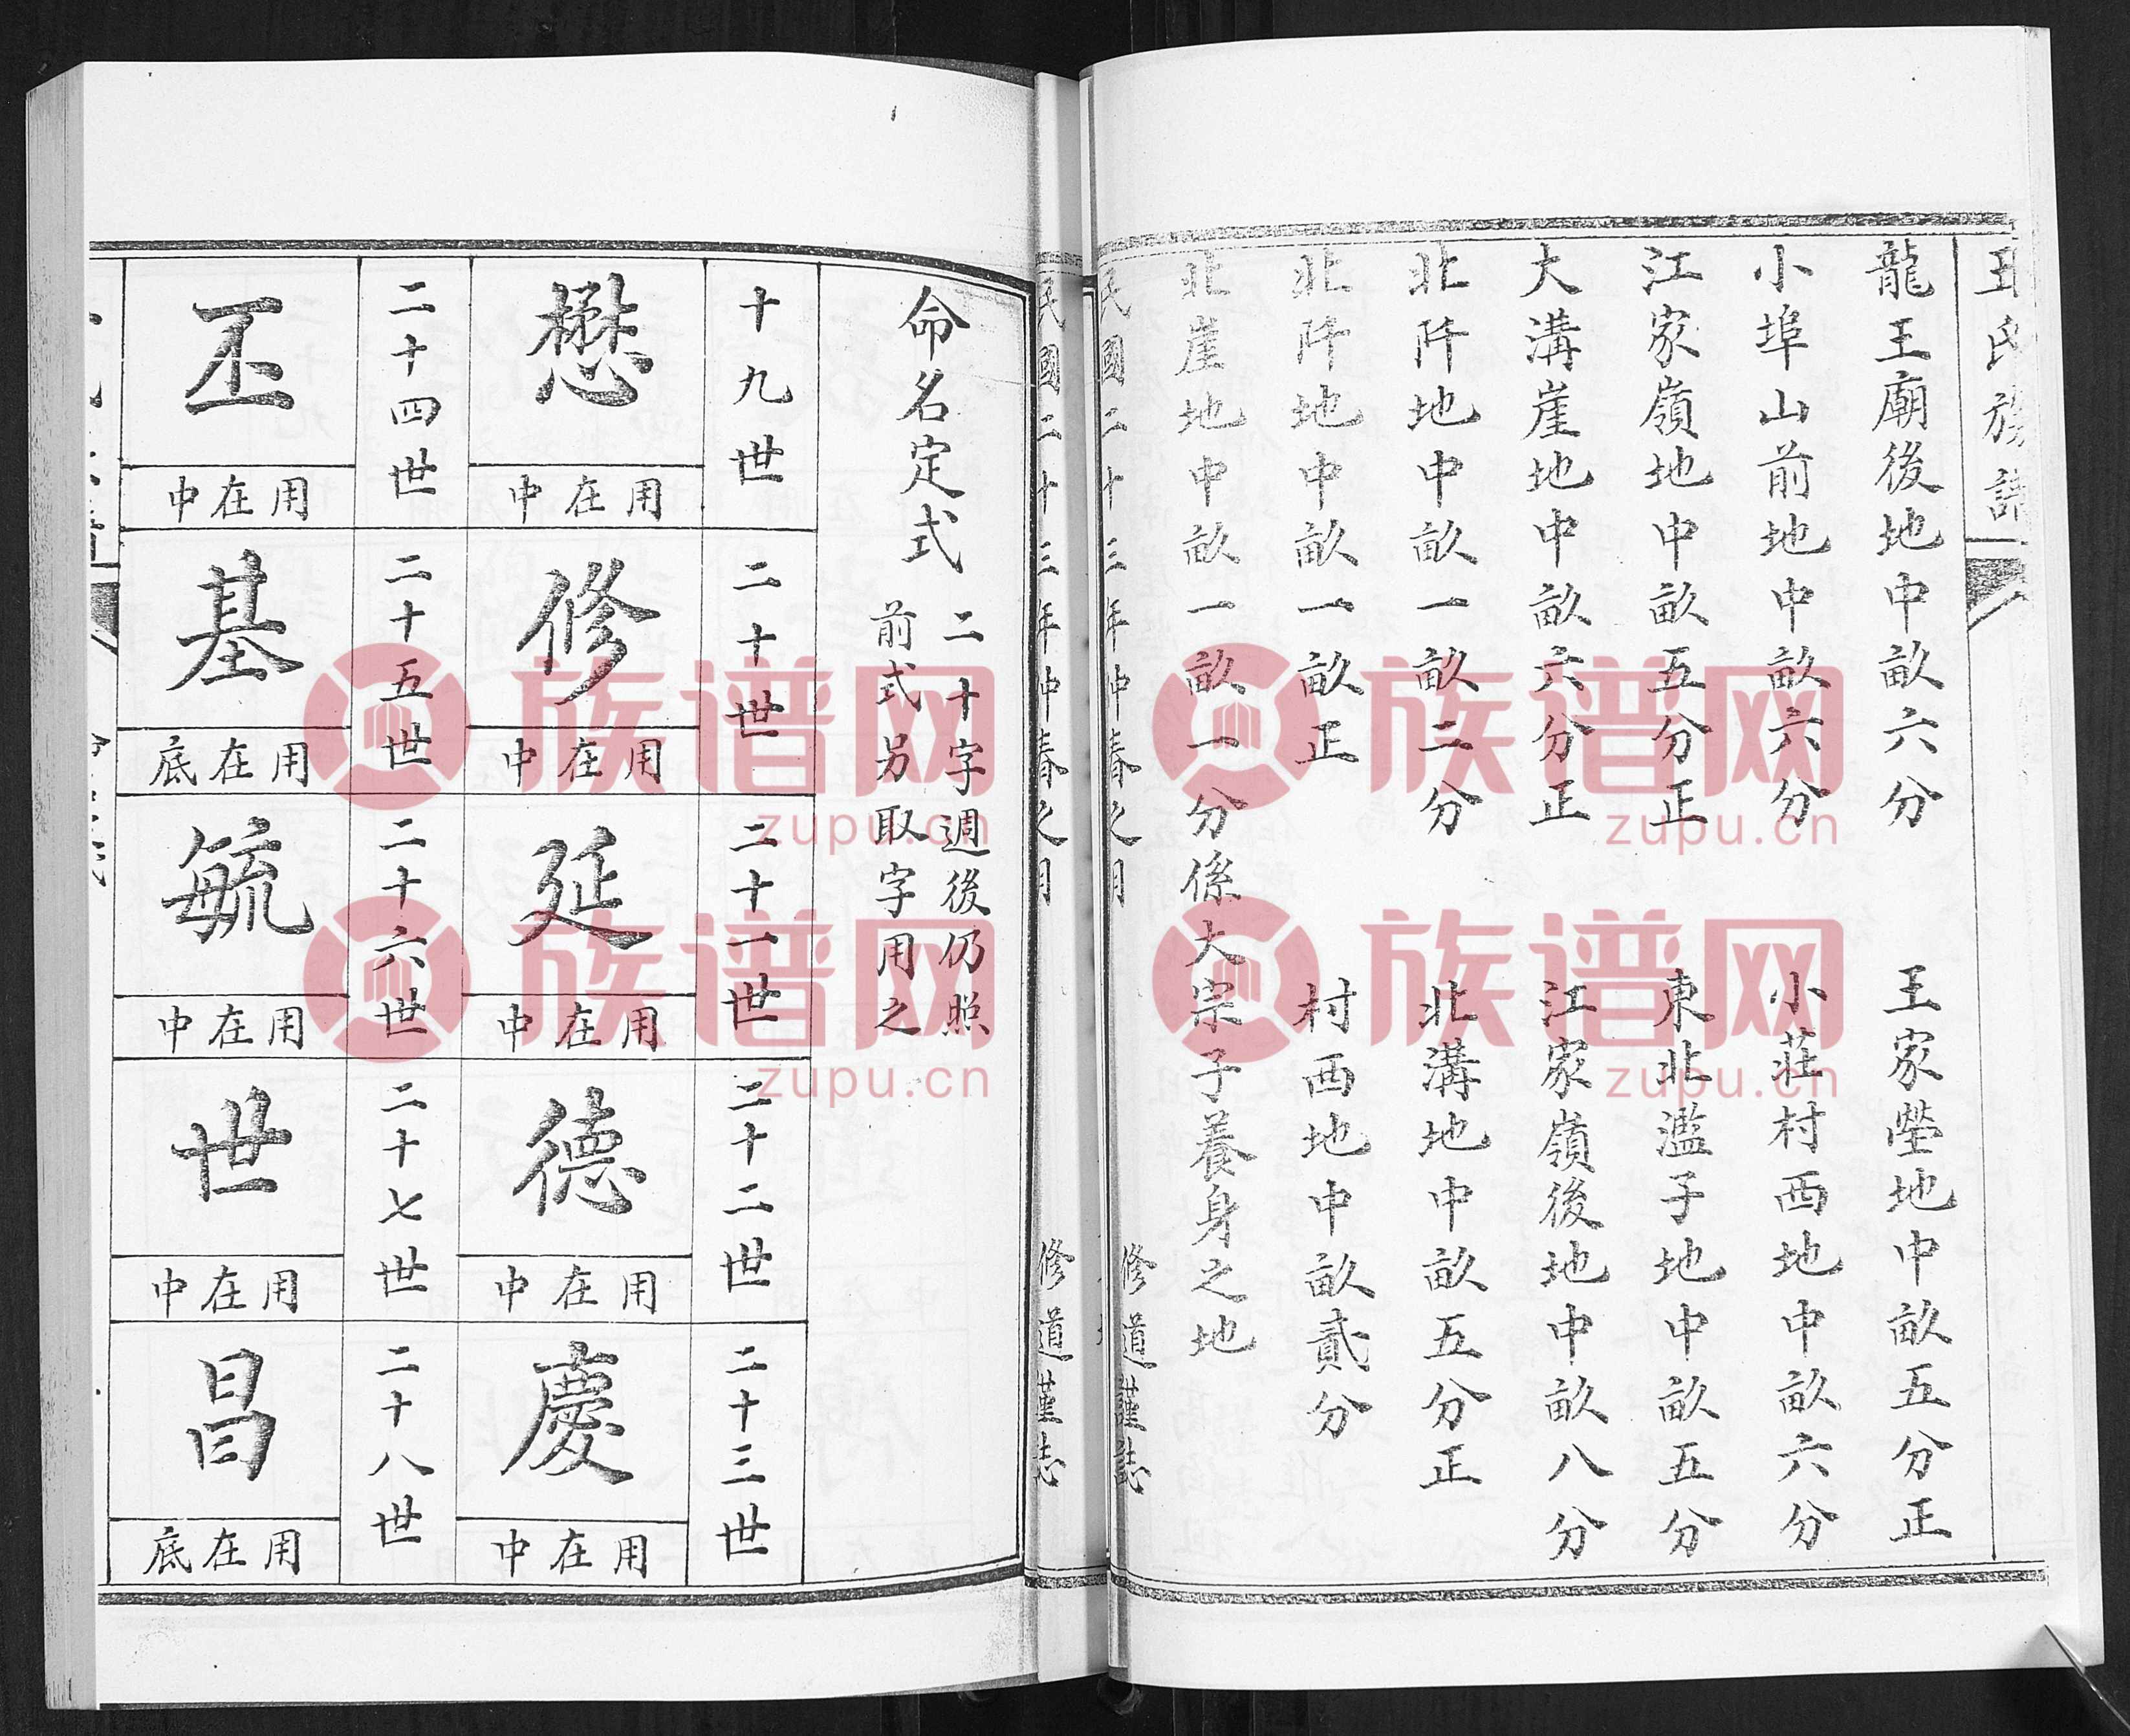 王氏族譜
龍王廟後地中畝六分　王家塋地中畝五分正
小埠山前地中畝六分　小莊村西地中畝六分
江家嶺地中畝五分正　東北濫子地中畝五分
大溝崖地中畝六分正　江家嶺後地中畝八分
北阡地中畝一畝二分　北溝地中畝五分正
北阡地中畝一畝正　村西地中畝貳分
北崖地中畝一畝一分係大宗子養身之地
民國二十三年仲春之月　修道謹誌
命名定式　二十字週後仍照
前式另取字用之
十九世　二十世　二十一世　二十二世　二十三世
懋　用在中　修　用在中　延　用在中　德　用在中　慶　用在中
二十四世　二十五世　二十六世　二十七世　二十八世
丕　用在中　基　用在底　毓　用在中　世　用在中　昌　用在底
族谱网
zupu.cn
族谱网
zupu.cn
族谱网
zupu.cn
族谱网
zupu.cn